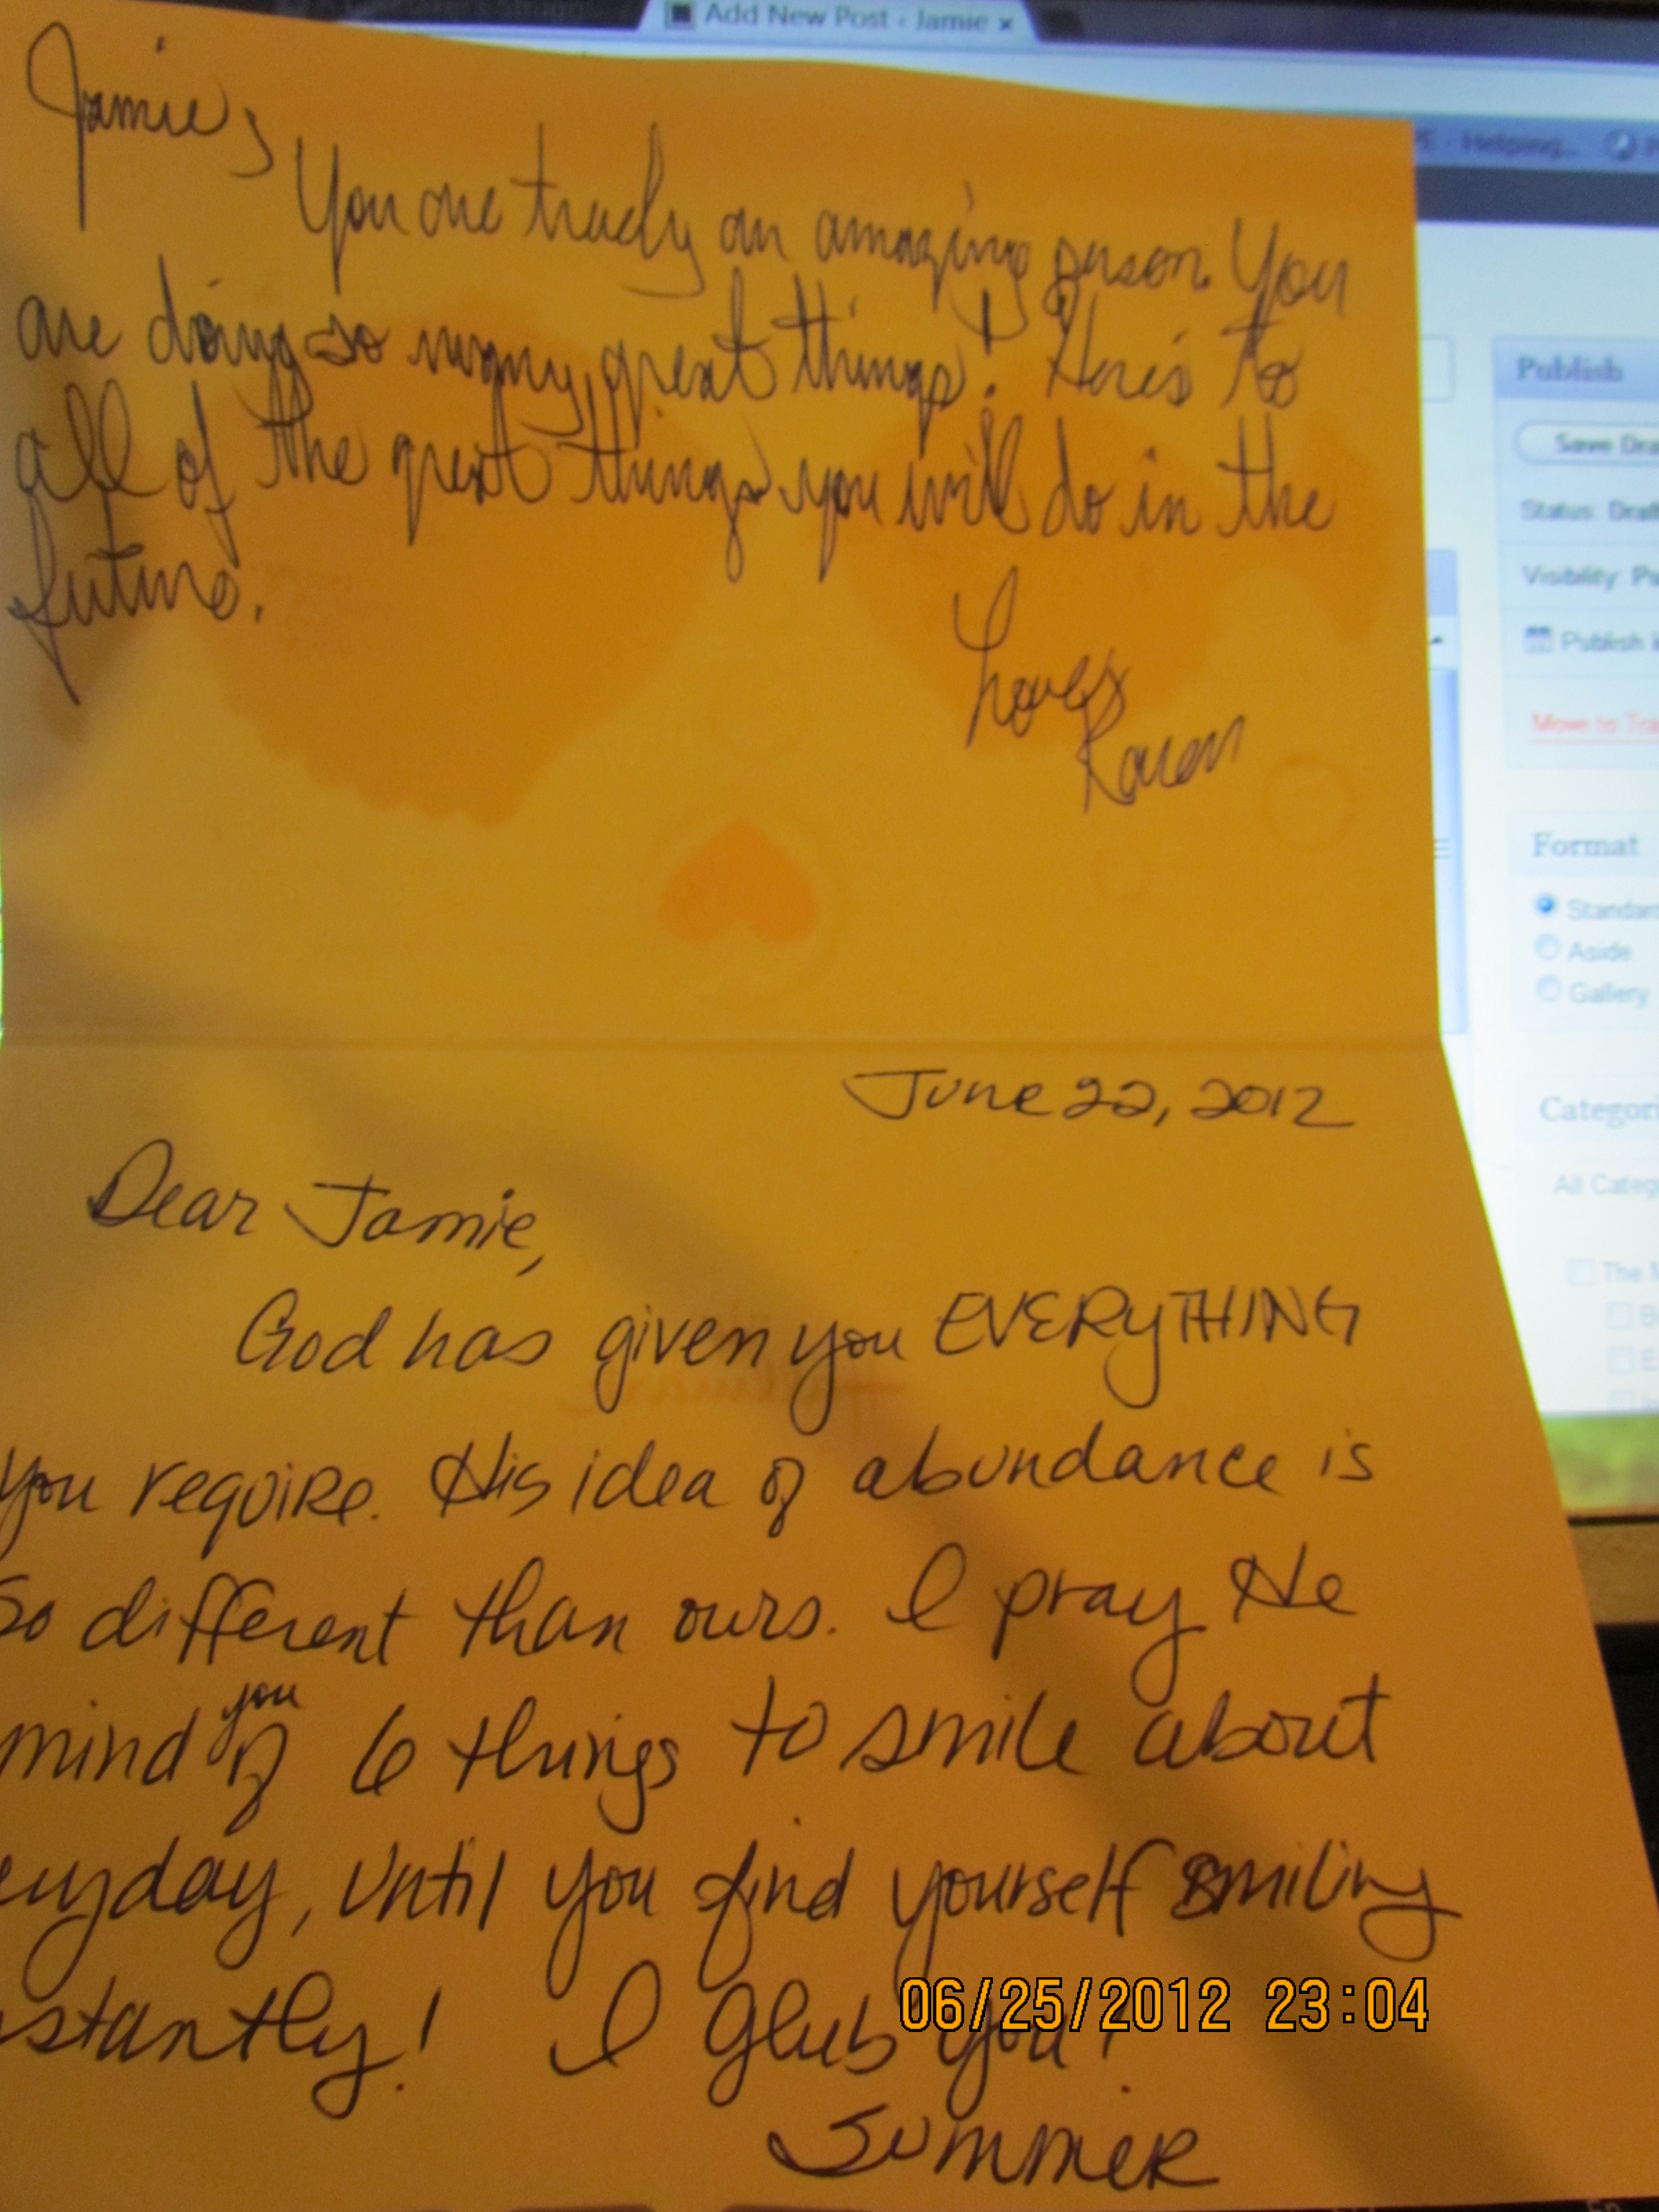 Add New Post ‹ Jamie ×
Helping...
Jamie,
You are truly an amazing person. You
are doing so many great things! Here's to
all of the great things you will do in the
future.
Love,
Karen
Publish
Save Dra
Status: Draft
Visibility: Pu
Publish i
Move to Tra
Format
Standar
Aside
Gallery
Categori
All Categ
The M
June 22, 2012
Dear Jamie,
God has given you EVERYTHING
you require. His idea of abundance is
so different than ours. I pray He
mind you of 6 things to smile about
eryday, until you find yourself smiling
stantly! I glub you!
Summer
06/25/2012 23:04